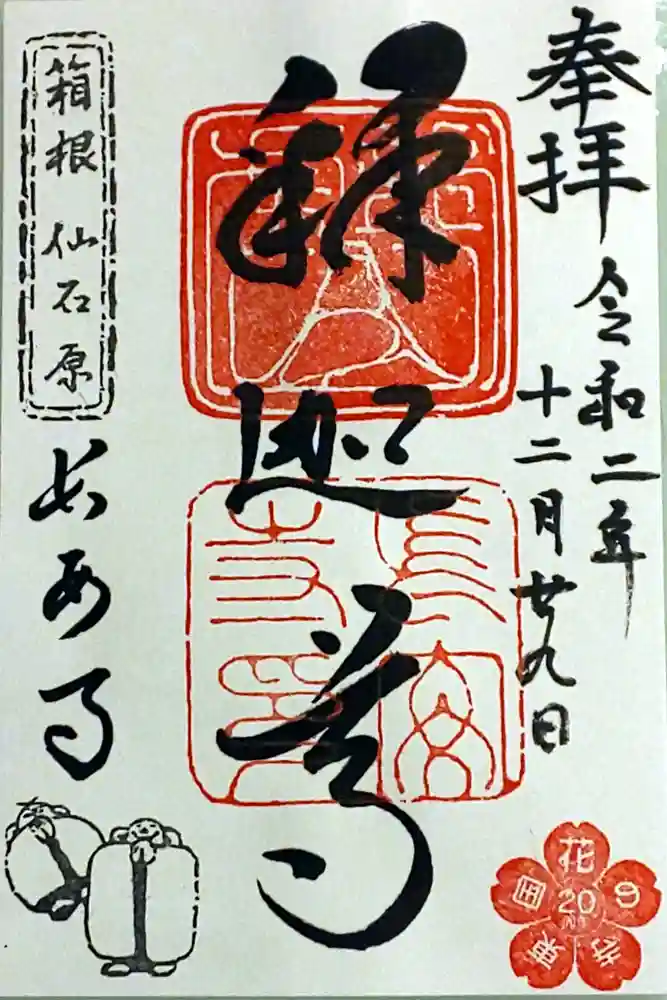 奉拝
令和二年
十二月廿九日
釋迦尊
箱根 仙石原
長安寺
長安寺印
東国花の寺
20